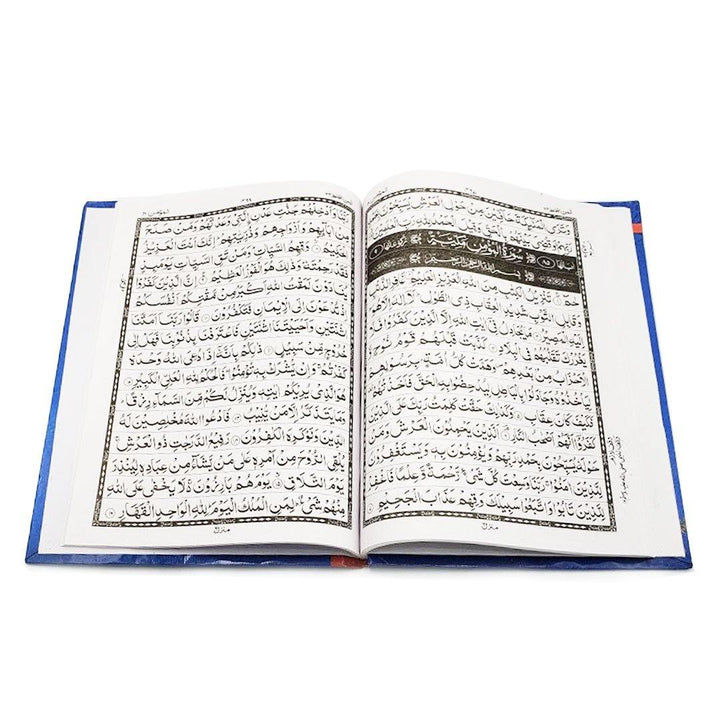 وَتَرَى الْمَلٰٓئِكَةَ حَآفِّيْنَ مِنْ حَوْلِ الْعَرْشِ يُسَبِّحُوْنَ
وَقُضِيَ بَيْنَهُمْ بِالْحَقِّ وَقِيْلَ الْحَمْدُ لِلّٰهِ رَبِّ
سُوْرَةُ الْمُؤْمِنِ مَكِّيَّةٌ
بِسْمِ اللّٰهِ الرَّحْمٰنِ الرَّحِيْمِ
حٰمٓ تَنْزِيْلُ الْكِتٰبِ مِنَ اللّٰهِ الْعَزِيْزِ الْعَلِيْمِ غَافِرِ الذَّنْۢبِ
وَقَابِلِ التَّوْبِ شَدِيْدِ الْعِقَابِ ذِي الطَّوْلِ لَآ اِلٰهَ اِلَّا هُوَ
اِلَيْهِ الْمَصِيْرُ مَا يُجَادِلُ فِيْٓ اٰيٰتِ اللّٰهِ اِلَّا الَّذِيْنَ كَفَرُوْا فَلَا
يَغْرُرْكَ تَقَلُّبُهُمْ فِي الْبِلَادِ كَذَّبَتْ قَبْلَهُمْ قَوْمُ نُوْحٍ وَّ
الْاَحْزَابُ مِنْۢ بَعْدِهِمْ وَهَمَّتْ كُلُّ اُمَّةٍۢ بِرَسُوْلِهِمْ
لِيَاْخُذُوْهُ وَجَادَلُوْا بِالْبَاطِلِ لِيُدْحِضُوْا بِهِ الْحَقَّ فَاَخَذْتُهُمْ
فَكَيْفَ كَانَ عِقَابِ وَكَذٰلِكَ حَقَّتْ كَلِمَتُ رَبِّكَ عَلَى الَّذِيْنَ
كَفَرُوْٓا اَنَّهُمْ اَصْحٰبُ النَّارِ اَلَّذِيْنَ يَحْمِلُوْنَ الْعَرْشَ وَمَنْ
حَوْلَهٗ يُسَبِّحُوْنَ بِحَمْدِ رَبِّهِمْ وَيُؤْمِنُوْنَ بِهٖ وَيَسْتَغْفِرُوْنَ
لِلَّذِيْنَ اٰمَنُوْا رَبَّنَا وَسِعْتَ كُلَّ شَيْءٍ رَّحْمَةً وَّعِلْمًا فَاغْفِرْ
لِلَّذِيْنَ تَابُوْا وَاتَّبَعُوْا سَبِيْلَكَ وَقِهِمْ عَذَابَ الْجَحِيْمِ
منزل
رَبَّنَا وَاَدْخِلْهُمْ جَنّٰتِ عَدْنِ الَّتِيْ وَعَدْتَّهُمْ وَمَنْ صَلَحَ
مِنْ اٰبَآئِهِمْ وَاَزْوَاجِهِمْ وَذُرِّيّٰتِهِمْ اِنَّكَ اَنْتَ الْعَزِيْزُ
الْحَكِيْمُ وَقِهِمُ السَّيِّاٰتِ وَمَنْ تَقِ السَّيِّاٰتِ يَوْمَئِذٍ
فَقَدْ رَحِمْتَهٗ وَذٰلِكَ هُوَ الْفَوْزُ الْعَظِيْمُ اِنَّ الَّذِيْنَ كَفَرُوْا
يُنَادَوْنَ لَمَقْتُ اللّٰهِ اَكْبَرُ مِنْ مَّقْتِكُمْ اَنْفُسَكُمْ اِذْ
تُدْعَوْنَ اِلَى الْاِيْمَانِ فَتَكْفُرُوْنَ قَالُوْا رَبَّنَآ اَمَتَّنَا
اثْنَتَيْنِ وَاَحْيَيْتَنَا اثْنَتَيْنِ فَاعْتَرَفْنَا بِذُنُوْبِنَا فَهَلْ اِلٰى
خُرُوْجٍ مِّنْ سَبِيْلٍ ذٰلِكُمْ بِاَنَّهٗٓ اِذَا دُعِيَ اللّٰهُ وَحْدَهٗ
كَفَرْتُمْ وَاِنْ يُّشْرَكْ بِهٖ تُؤْمِنُوْا فَالْحُكْمُ لِلّٰهِ الْعَلِيِّ الْكَبِيْرِ
هُوَ الَّذِيْ يُرِيْكُمْ اٰيٰتِهٖ وَيُنَزِّلُ لَكُمْ مِّنَ السَّمَآءِ رِزْقًا
وَمَا يَتَذَكَّرُ اِلَّا مَنْ يُّنِيْبُ فَادْعُوا اللّٰهَ مُخْلِصِيْنَ لَهُ
الدِّيْنَ وَلَوْ كَرِهَ الْكٰفِرُوْنَ رَفِيْعُ الدَّرَجٰتِ ذُو الْعَرْشِ
يُلْقِي الرُّوْحَ مِنْ اَمْرِهٖ عَلٰى مَنْ يَّشَآءُ مِنْ عِبَادِهٖ لِيُنْذِرَ
يَوْمَ التَّلَاقِ يَوْمَ هُمْ بٰرِزُوْنَ لَا يَخْفٰى عَلَى اللّٰهِ
مِنْهُمْ شَيْءٌ لِمَنِ الْمُلْكُ الْيَوْمَ لِلّٰهِ الْوَاحِدِ الْقَهَّارِ
منزل